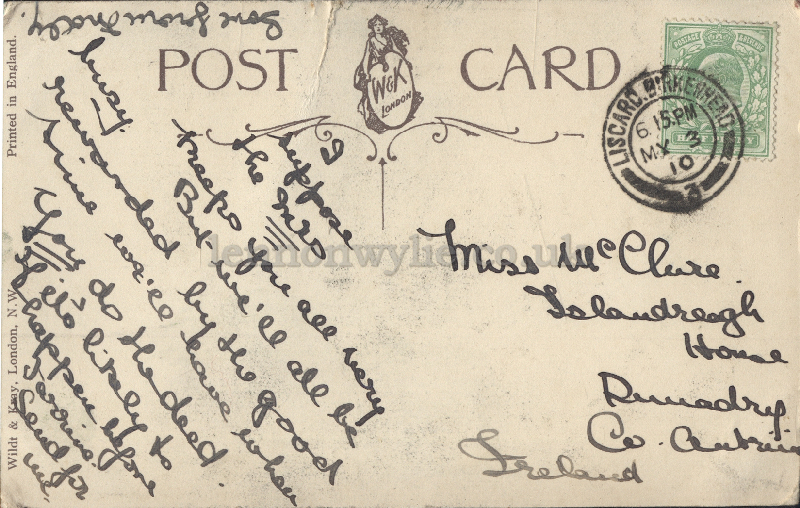 POST CARD
W&K
LONDON
LISCARD.BIRKENHEAD
6.15PM
MY 3
10
3
POSTAGE & REVENUE
Printed in England.
Wildt & Kray, London, N.W.
I
suppose
the
keeps you all very
busy.
But we'll all be
rewarded by the good
time we'll have when
You do the deed.
If it's likely to
happen before
Send for
me.
Love from
Miss McClure.
Islandreagh
House
Dunadry
Co. Antrim
Ireland
lennonwylie.co.uk